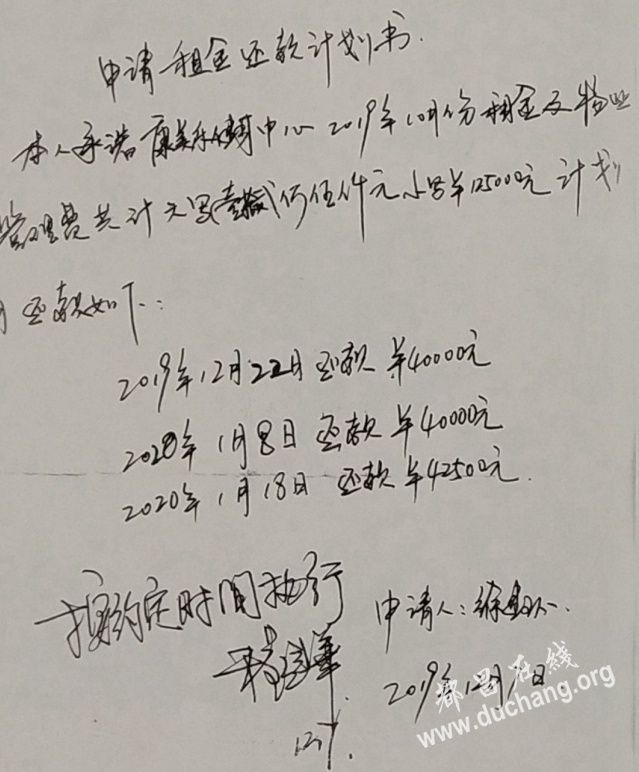 申请租金还款计划书.
本人承诺康美 中心2019年10月份租金及物业
管理费共计大写 万 仟元小写¥12500元计划
月还款如下:
2019年12月22日还款¥40000元
2020年1月8日还款¥40000元
2020年1月18日还款¥42500元.
按约定时间执行
申请人:徐
2019年12月 日
都昌在线
www.duchang.org